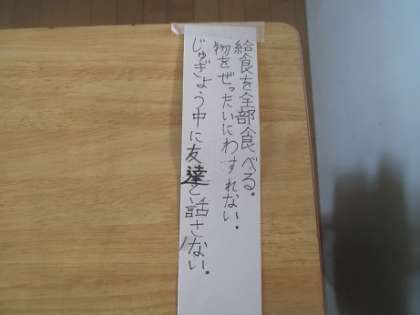 給食を全部食べる。
物をぜったいにわすれない。
じゅぎょう中に友達と話さない。